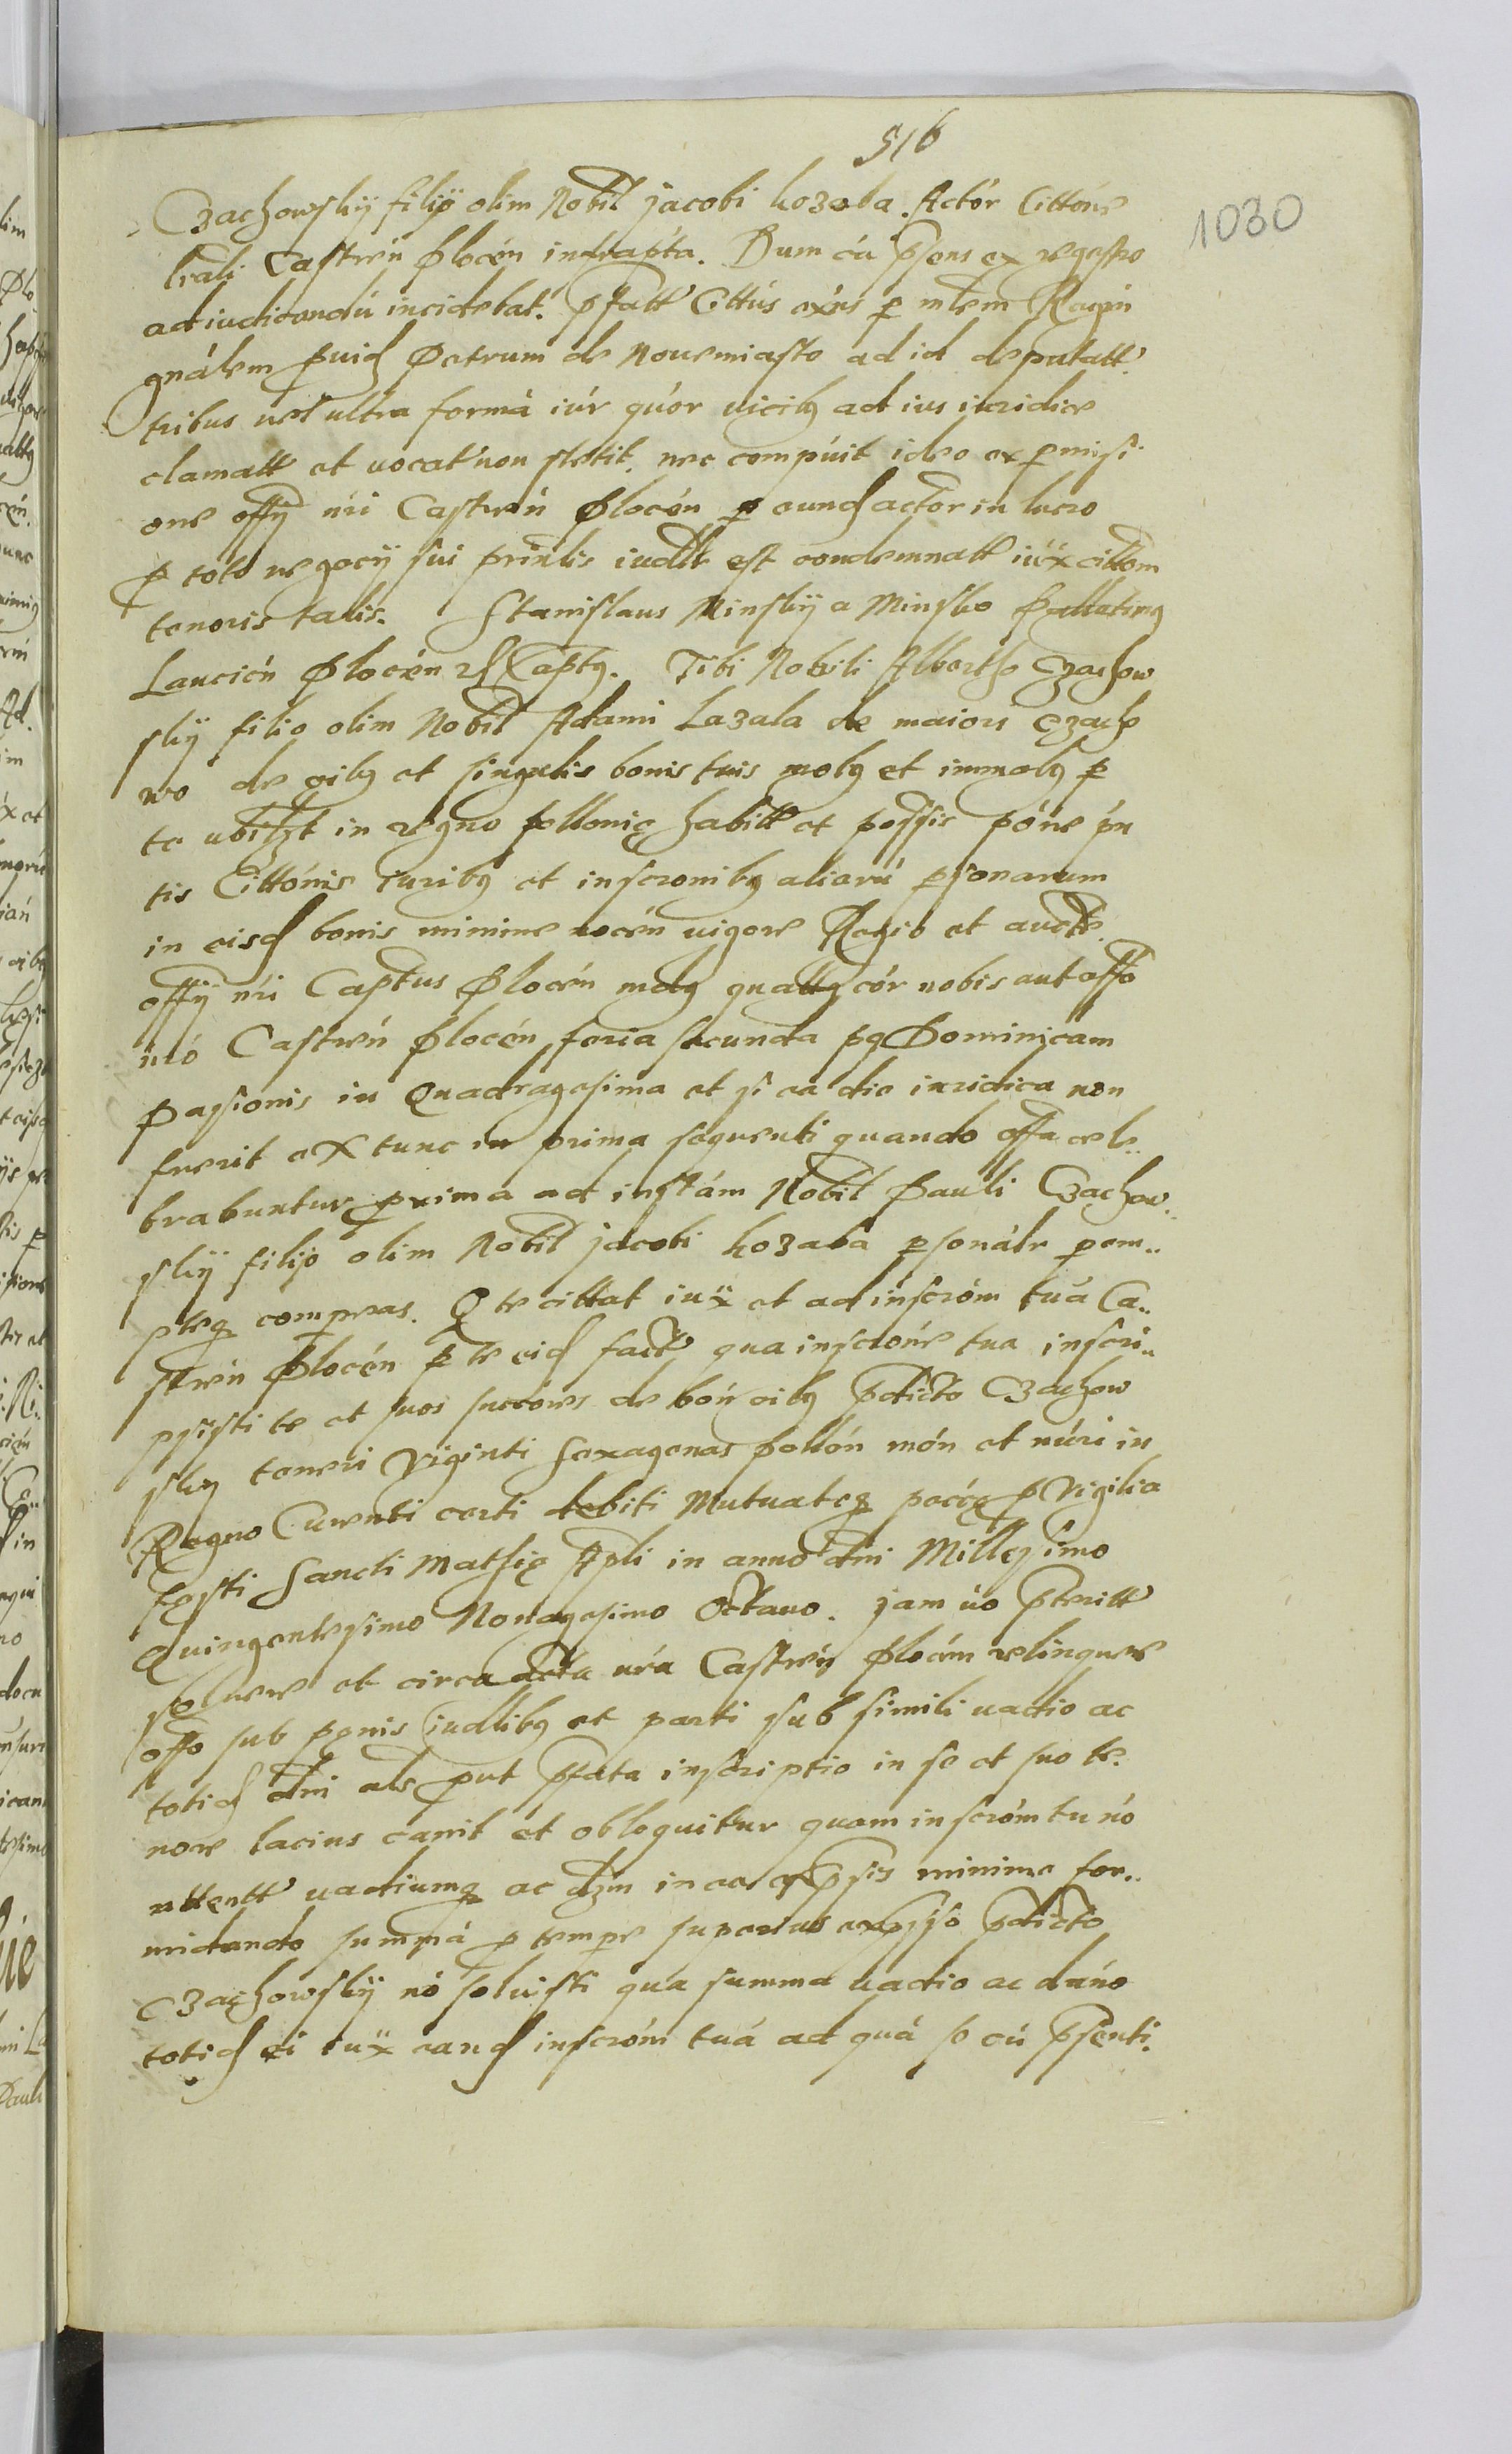 516
1030
Czachowskÿ filÿ olim Nobil Jacobi kozaba. Actor Cittóne
lrali Castren Plocen infrapta. Dum cá psens ex regestro
ad iudicandú incidebat. pfatt Cittús exns p mlem Regni
gnálem puid Petrum de Nouemiasto ad id deputatt
tribus uel ultra formá iúr qúor uicibꝫ ad ius iuridice
clamatt et uocat non stetit nec compúit ideo ex pmisi
one offÿ nri Castren Plocen p eund actor in lucro
p toto negocÿ sui prinlis iudlr est condemnatt iúx cittom
tenoris talis. Stanislaus Minskÿ a Minsko Pallatinꝫ
Lancicn Plocen Captꝫ. Tibi Nobili Albertho Czachow
skÿ filio olim Nobil Adami Lazala de maiori Czacho
wo de oibꝫ et singulis bonis tuis mobꝫ et immobꝫ p
te ubilzt in regno pollonię habitt et possis póne pn
tis Cittónis iuribꝫ et inscronibꝫ aliarú psonarum
in eisd bonis minime nocén uigore Regio et aucte
offÿ nri Captus Plocen mdꝫ quattꝫ cór nobis aut offo
nró Castren Plocén feria secunda pq Dominicam
Pasionis in Quadragesima et si ea die iuridica non
fuerit ex tunc in prima sequenti quando offa cele..
brabuntur prima ad instám Nobil Pauli Czachow..
skÿ filÿ olim Nobil Jacobi kozaba psonálr pem..
pteqꝫ compeas. Q te cittat iúx et ad inscróm tuá Ca..
stren Plocén p te eid fact qua inscrone tua inscri..
psisti te et suos succóres de bón oibꝫ pdicto Czachow
skÿ teneri Viginti sexagenas pollón món et núri in
Regno Curenti certi debiti Mutuateqꝫ pecćę p Vigilia
festi Sancti Mathię Apli in anno dni Millesimo
Quingentesimo Nonagesimo Octauo. jam úo pteritt
soluere et circa acta nra Castren Plocén relinquere
offo sub penis iudlibꝫ et parti sub simili uadio ac
totid dni als put pfata inscriptio in se et suo te.
nore lacius canit et obloquitur quam inscróm tu nó
attentt uadiumqꝫ ac dzm in ea expsis minime for..
midando summá p tempe superius expsso pdicto
Czachowskÿ nó soluisti qua summa uadio ac dáno
totid ei iúx eand inscróm tuá ad quá se cú psenti.